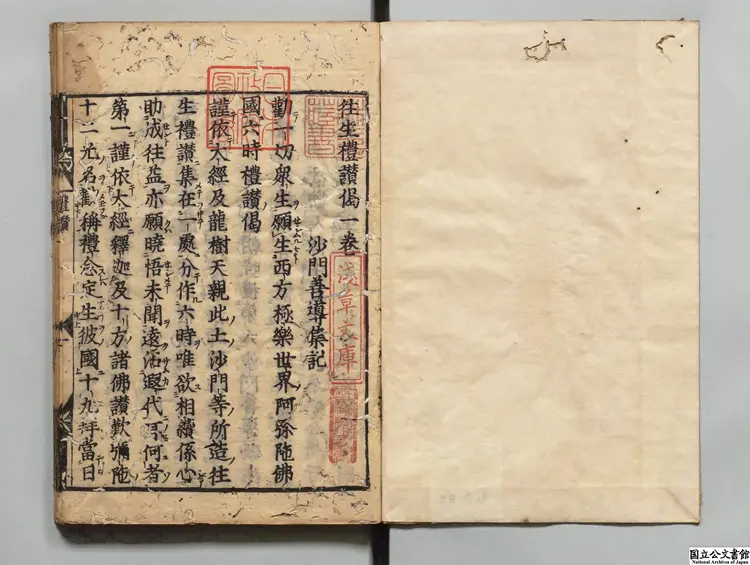 往生禮讃偈一卷
沙門善導集記
勸一切衆生願生西方極樂世界阿弥陁佛
國六時禮讃偈
謹依大經及龍樹天親此土沙門等所造往
生禮讃集在一處分作六時唯欲相續係心
助成往益亦願曉悟未聞遠沾遐代耳何者
第一謹依大經釋迦及十方諸佛讃歎彌陁
十二光名勸稱禮念定生彼國十九拜當日
淺草文庫
禮讃
国立公文書館
National Archives of Japan